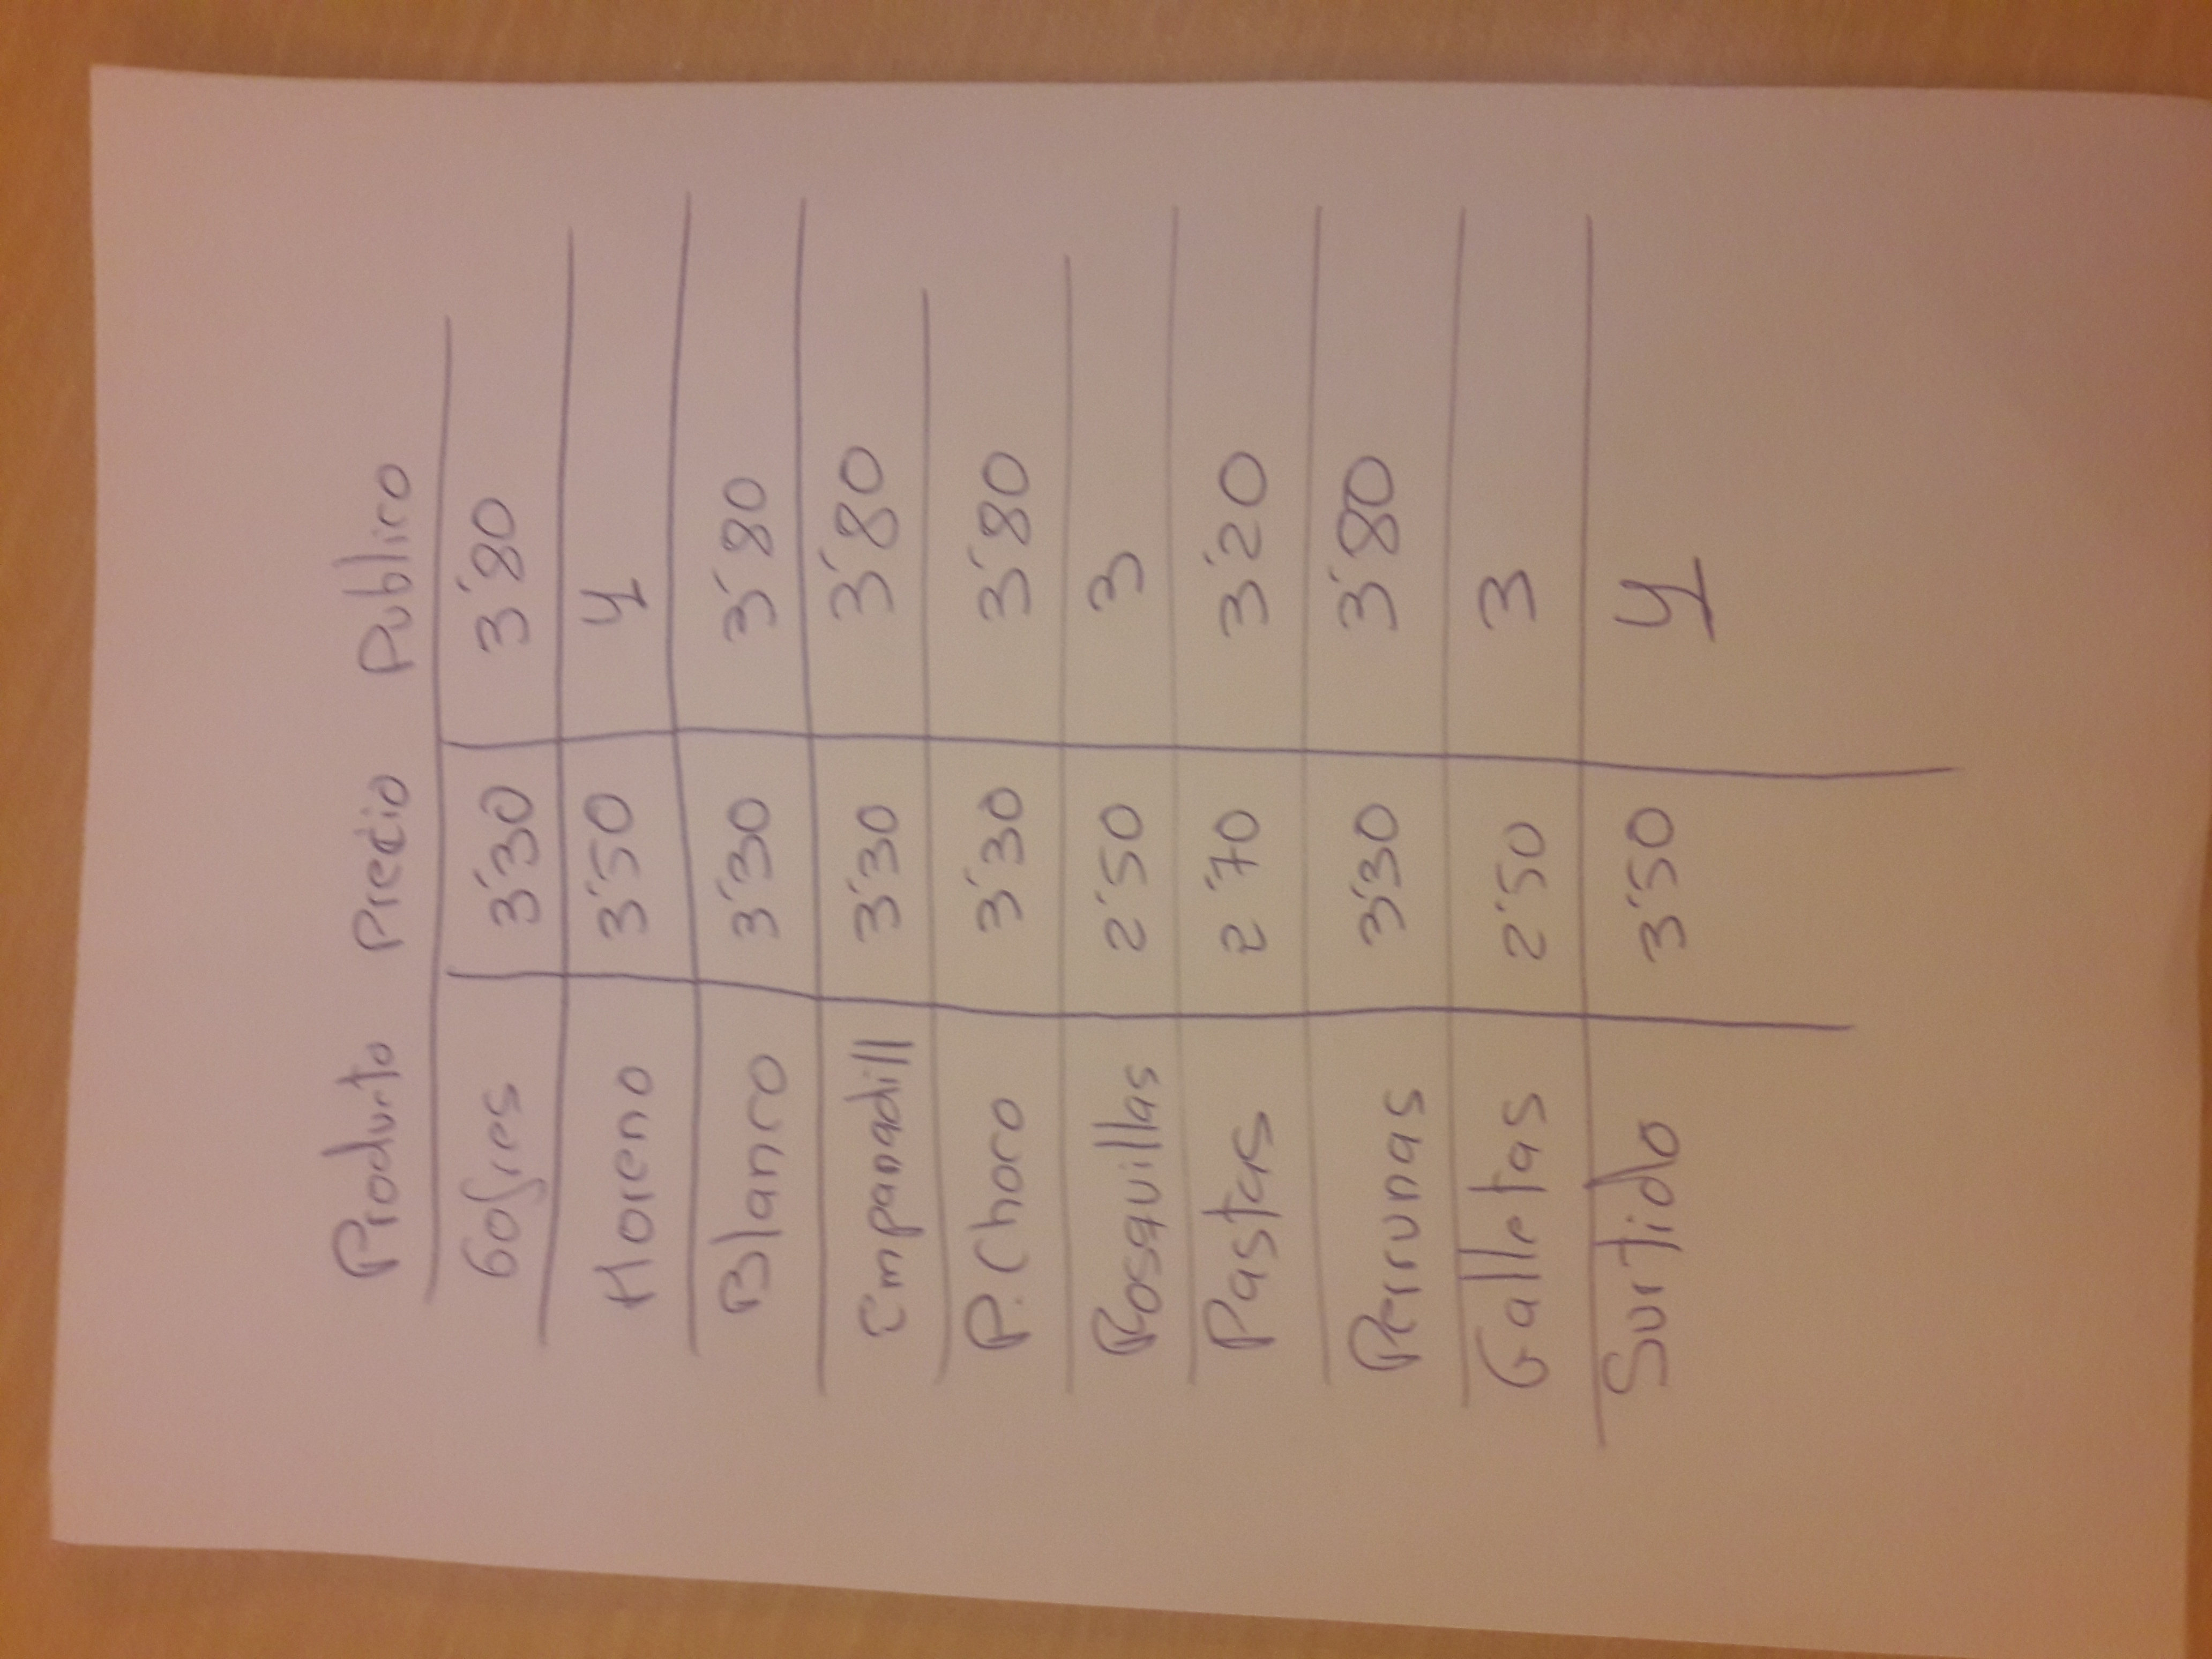 Producto Precio Publico
Gofres 3'30 3'80
Moreno 3'50 4
Blanco 3'30 3'80
Empanadill 3'30 3'80
P. Choco 3'30 3'80
Rosquillas 2'50 3
Pastas 2'70 3'20
Perrunas 3'30 3'80
Galletas 2'50 3
Surtido 3'50 4